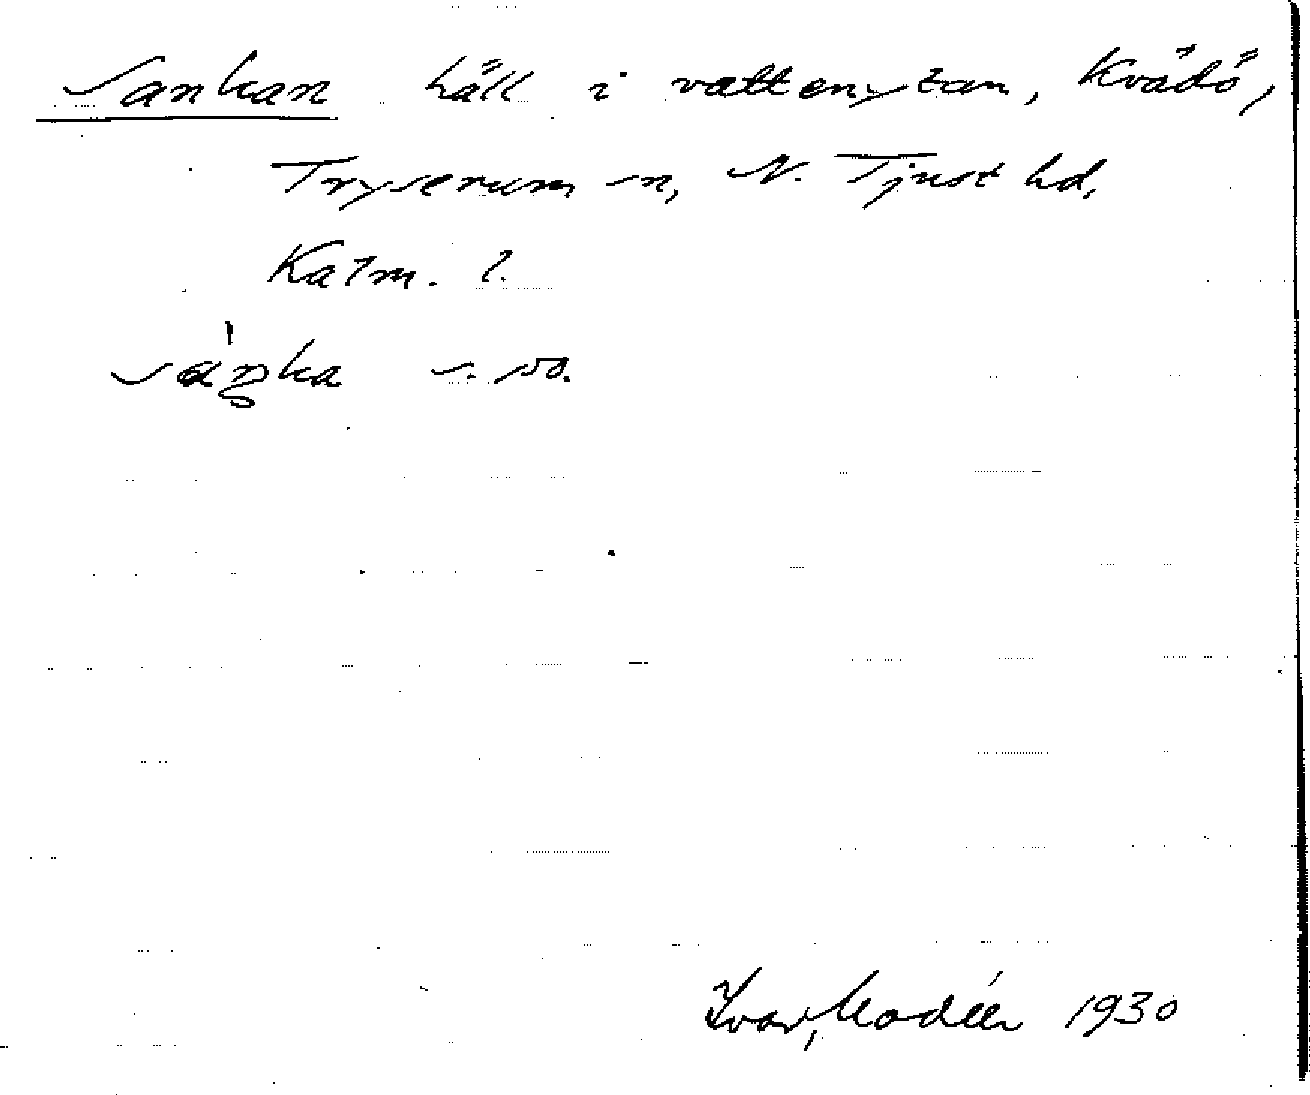 Sankan häll i vattenytan, Kvädö,
Tryserum sn, N. Tjust hd,
Kalm. l.
sáŋka s. so.
Ivar Modéer 1930